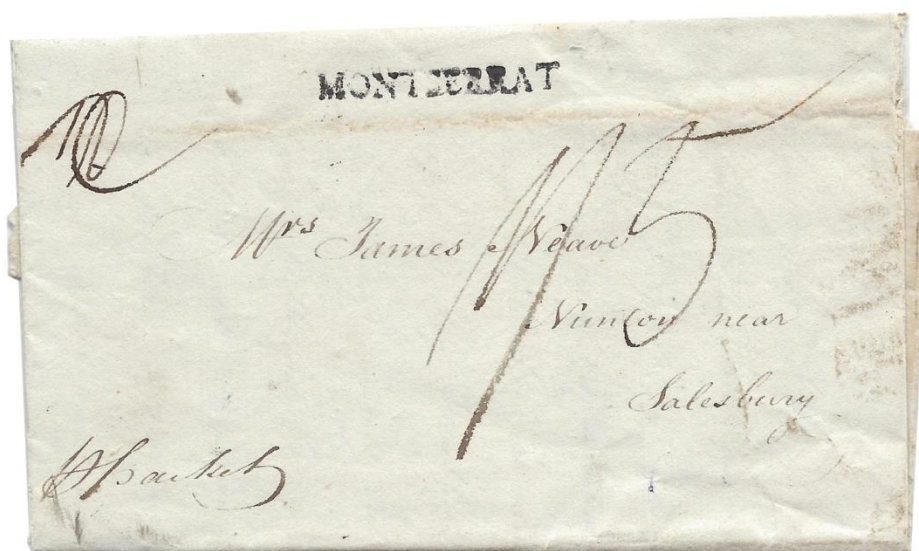 MONTSERRAT
Mrs James Neave
Nunton near
Salesbury
Packet